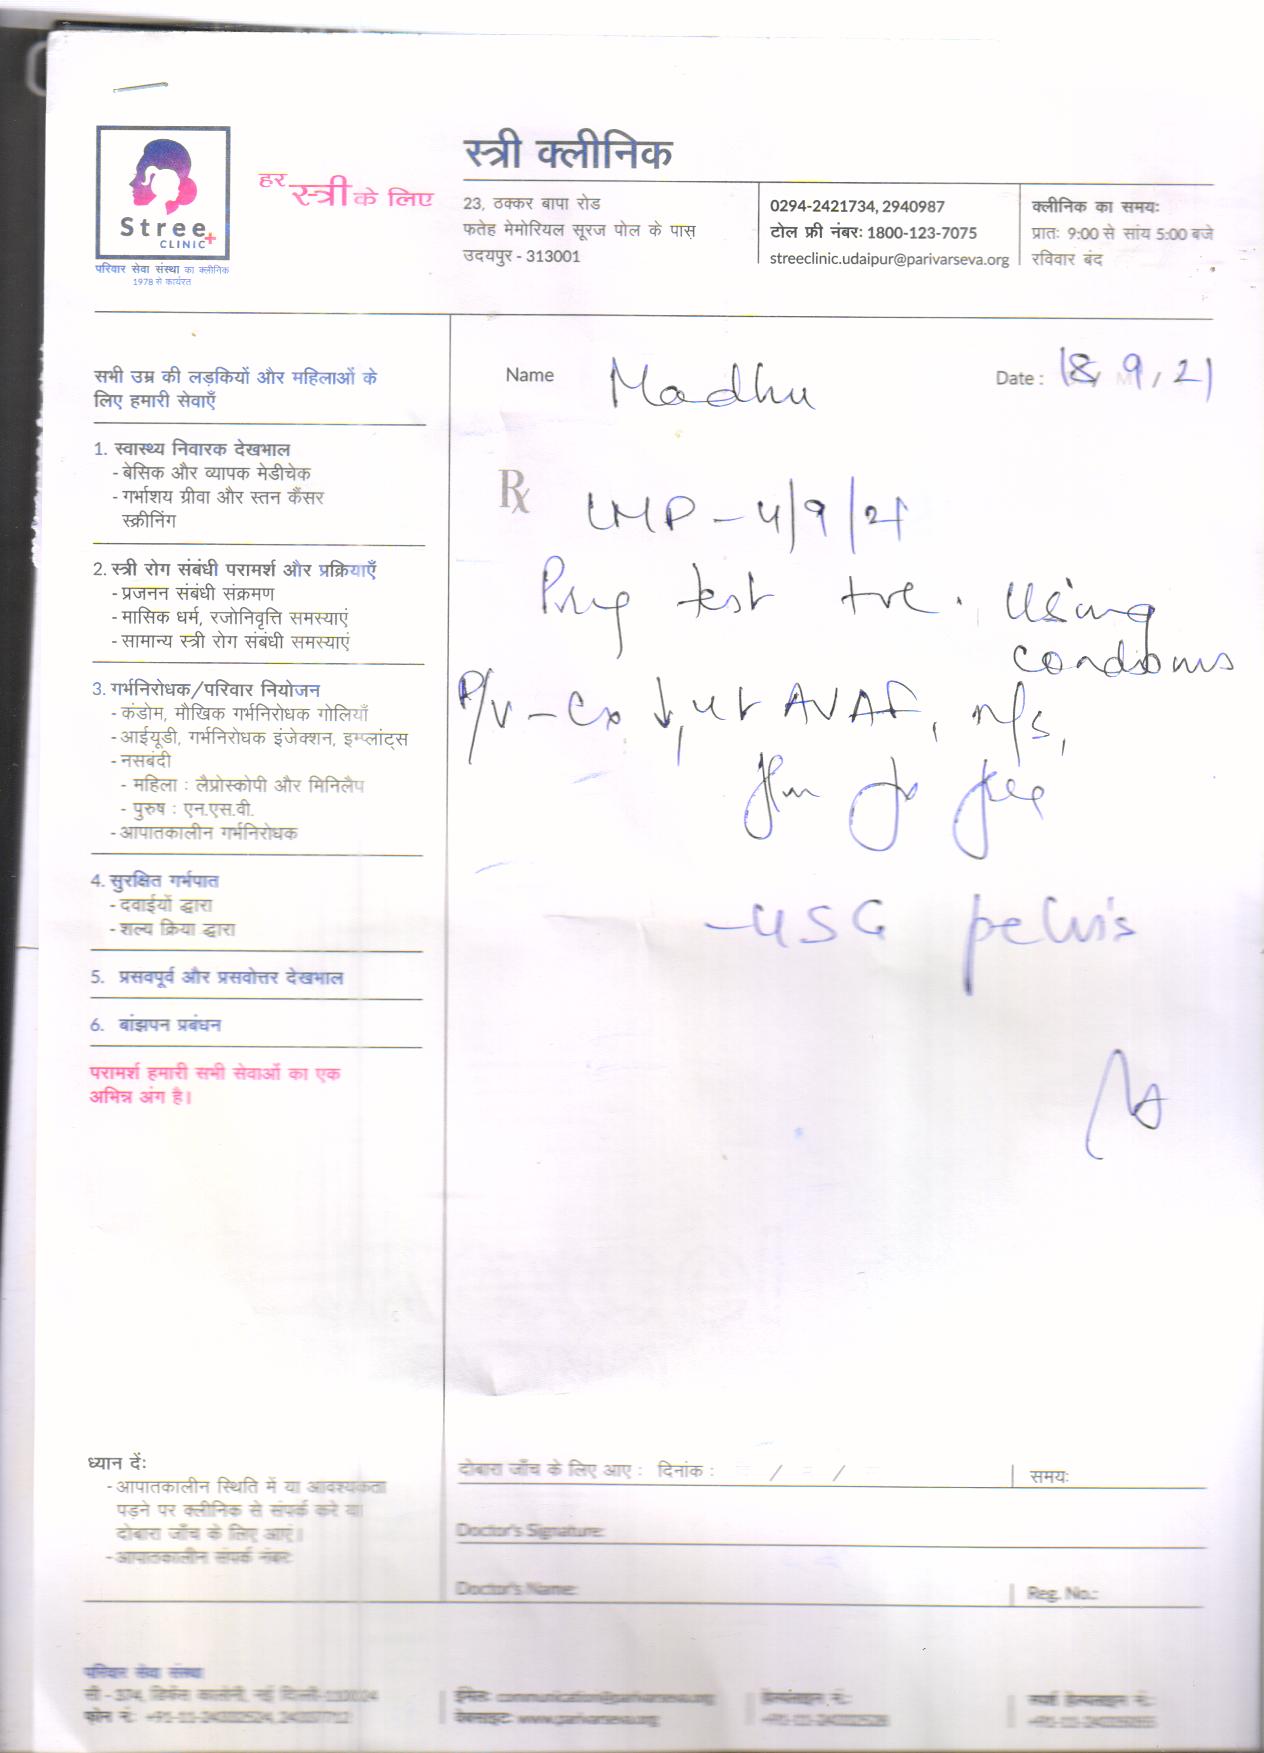 स्त्री क्लीनिक
हर स्त्री के लिए
Stree
CLINIC
परिवार सेवा संस्था का क्लीनिक
1978 से कार्यरत
23, ठक्कर बापा रोड
फतेह मेमोरियल सूरज पोल के पास
उदयपुर - 313001
0294-2421734, 2940987
टोल फ्री नंबर: 1800-123-7075
streeclinic.udaipur@parivarseva.org
क्लीनिक का समयः
प्रातः 9:00 से सांय 5:00 बजे
रविवार बंद
सभी उम्र की लड़कियों और महिलाओं के
लिए हमारी सेवाएँ
1. स्वास्थ्य निवारक देखभाल
- बेसिक और व्यापक मेडीचेक
- गर्भाशय ग्रीवा और स्तन कैंसर
स्क्रीनिंग
2. स्त्री रोग संबंधी परामर्श और प्रक्रियाएँ
- प्रजनन संबंधी संक्रमण
- मासिक धर्म, रजोनिवृत्ति समस्याएं
- सामान्य स्त्री रोग संबंधी समस्याएं
3. गर्भनिरोधक/परिवार नियोजन
- कंडोम, मौखिक गर्भनिरोधक गोलियाँ
- आईयूडी, गर्भनिरोधक इंजेक्शन, इम्प्लांट्स
- नसबंदी
- महिला : लैप्रोस्कोपी और मिनिलैप
- पुरुष : एन.एस.वी.
- आपातकालीन गर्भनिरोधक
4. सुरक्षित गर्भपात
- दवाईयों द्वारा
- शल्य क्रिया द्वारा
5. प्रसवपूर्व और प्रसवोत्तर देखभाल
6. बांझपन प्रबंधन
परामर्श हमारी सभी सेवाओं का एक
अभिन्न अंग है।
Name Madhu Date : 18, 9, 21
Rx LMP - 4/9/21
Preg test +ve. Using
condoms
P/V - Cx ↓, ut AVAF, n/s,
- USG pelvis
ध्यान दें:
- आपातकालीन स्थिति में या आवश्यकता
पड़ने पर क्लीनिक से संपर्क करे या
दोबारा जाँच के लिए आएं।
- आपातकालीन संपर्क नंबर:
दोबारा जाँच के लिए आए : दिनांक : / / समयः
Doctor's Signature:
Doctor's Name: Reg. No.:
परिवार सेवा संस्था